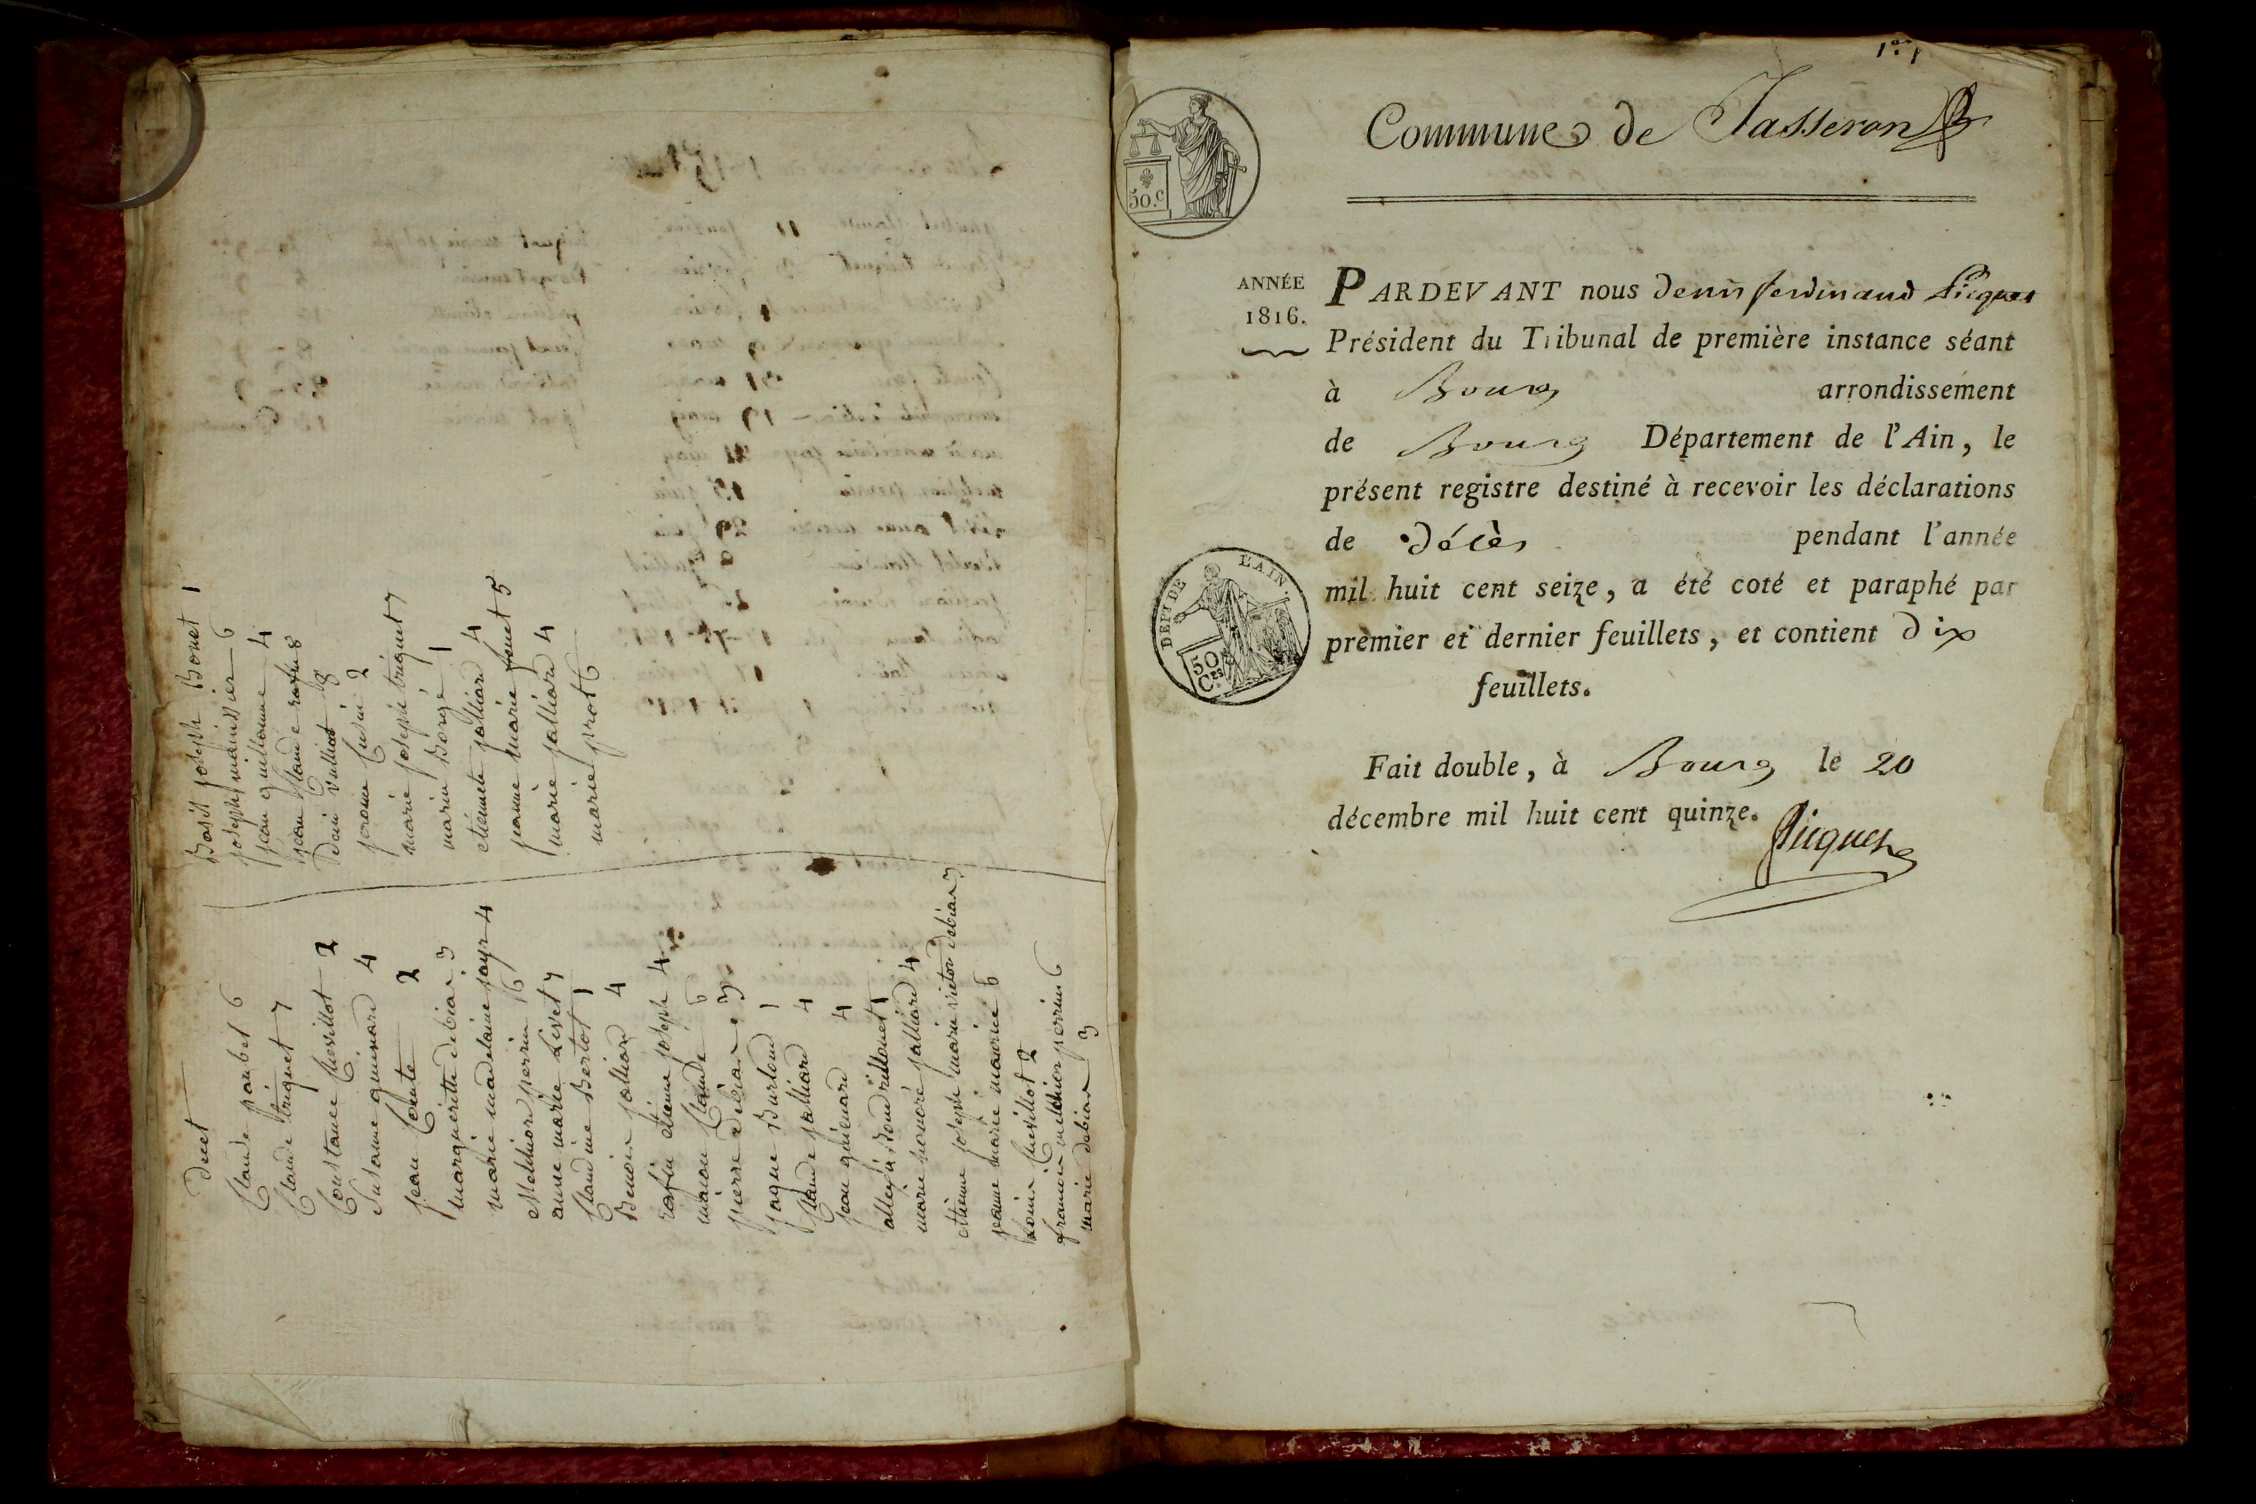 decet
Claude paubel 6
Claude triquet 7
Constance Chevillot 2
Susanne guinard 4
jean Comte 2
margueritte debias 3
marie madelaine paye 4
Melchior perrin 16
anne marie Livet 7
Claudine Bertot 1
Benoit jalliard 4
rafin étienne joseph 4
Claude 6
pierre debias 3
jaque Burlond 1
Claude jalliard 4
jean guienard 4
marie honoré jalliard 4
ettienne joseph marie victor debias 3
jeanne marie maurice 6
Louis Chevillot 2
francois melchior perrin 6
marie debias 3
Basil joseph Bonet 1
joseph maissier 6
jean guillaume 4
jean Claude rafin 8
Denis vulliod 8
perone Cudin 2
marie joseph triquet 7
marin Borgé 1
etiennete jalliard 4
jeanne marie fouet 5
marie jalliard 4
marie prost 6
1er
Commune de Jasseron
50.c
ANNÉE
1816.
PARDEVANT nous denis ferdinand Picquet
Président du Tribunal de première instance séant
à Bourg arrondissement
de Bourg Département de l'Ain, le
présent registre destiné à recevoir les déclarations
de décès pendant l'année
mil huit cent seize, a été coté et paraphé par
premier et dernier feuillets, et contient dix
feuillets.
DEPT DE L'AIN.
50
Ces
Fait double, à Bourg le 20
décembre mil huit cent quinze.
Picquet